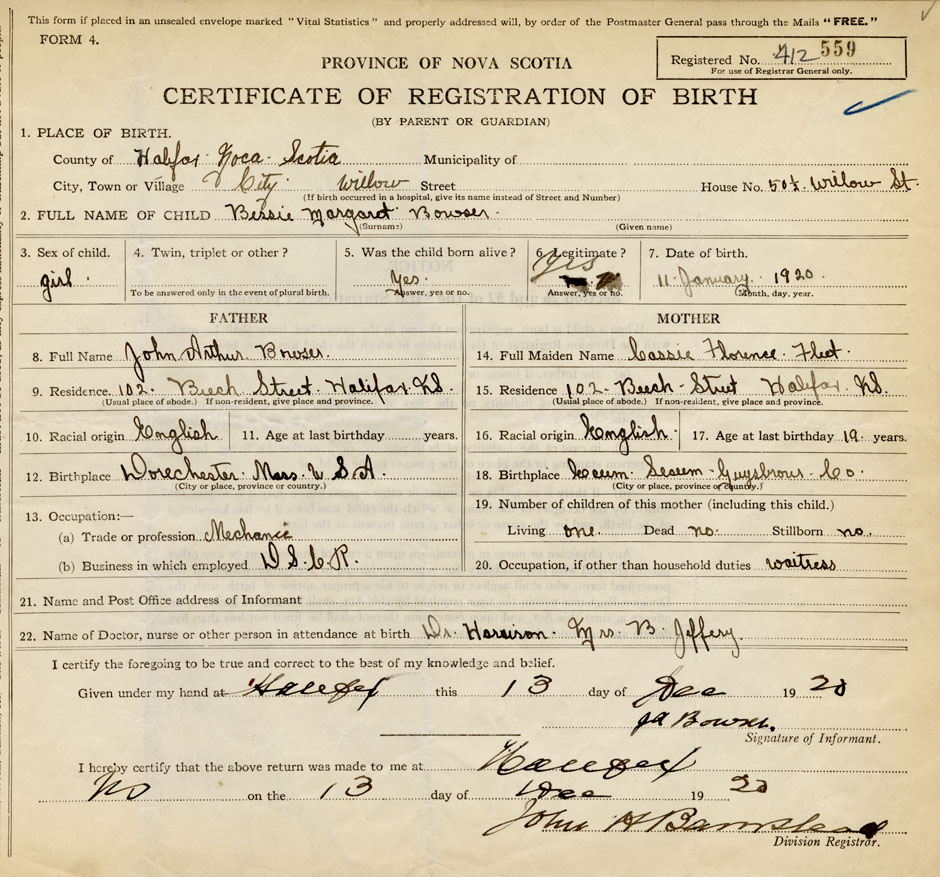 This form if placed in an unsealed envelope marked "Vital Statistics" and properly addressed will, by order of the Postmaster General pass through the Mails "FREE."
FORM 4.
Registered No. 412 559
For use of Registrar General only.
PROVINCE OF NOVA SCOTIA
CERTIFICATE OF REGISTRATION OF BIRTH
(BY PARENT OR GUARDIAN)
1. PLACE OF BIRTH.
County of Halifax Noca Scotia Municipality of
City, Town or Village City Willow Street House No. 50½ Willow St.
(If birth occurred in a hospital, give its name instead of Street and Number)
2. FULL NAME OF CHILD Bessie Margaret Bowser
(Surname) (Given name)
3. Sex of child. 4. Twin, triplet or other? 5. Was the child born alive? 6. Legitimate? 7. Date of birth.
girl Yes Yes 11 January 1920
To be answered only in the event of plural birth. Answer, yes or no. Answer, yes or no. Month, day, year.
FATHER MOTHER
8. Full Name John Arthur Bowser. 14. Full Maiden Name Cassie Florence Fleet
9. Residence 102 Beech Street Halifax NS. 15. Residence 102 Beech Street Halifax NS.
(Usual place of abode.) If non-resident, give place and province. (Usual place of abode.) If non-resident, give place and province.
10. Racial origin English 11. Age at last birthday years. 16. Racial origin English 17. Age at last birthday 19 years.
12. Birthplace Dorechester Mass. U S A. 18. Birthplace Secum Guysbrous Co
(City or place, province or country.) (City or place, province or country.)
13. Occupation:— 19. Number of children of this mother (including this child.)
(a) Trade or profession Mechanic Living one. Dead no. Stillborn no.
(b) Business in which employed D. S. C. R. 20. Occupation, if other than household duties waitress
21. Name and Post Office address of Informant
22. Name of Doctor, nurse or other person in attendance at birth Dr. Harrison Mrs. B Jeffery.
I certify the foregoing to be true and correct to the best of my knowledge and belief.
Given under my hand at Halifax this 13 day of Dec 1920
J A Bowser.
Signature of Informant.
I hereby certify that the above return was made to me at Halifax
NS on the 13 day of Dec 1920
John H Barnstead
Division Registrar.